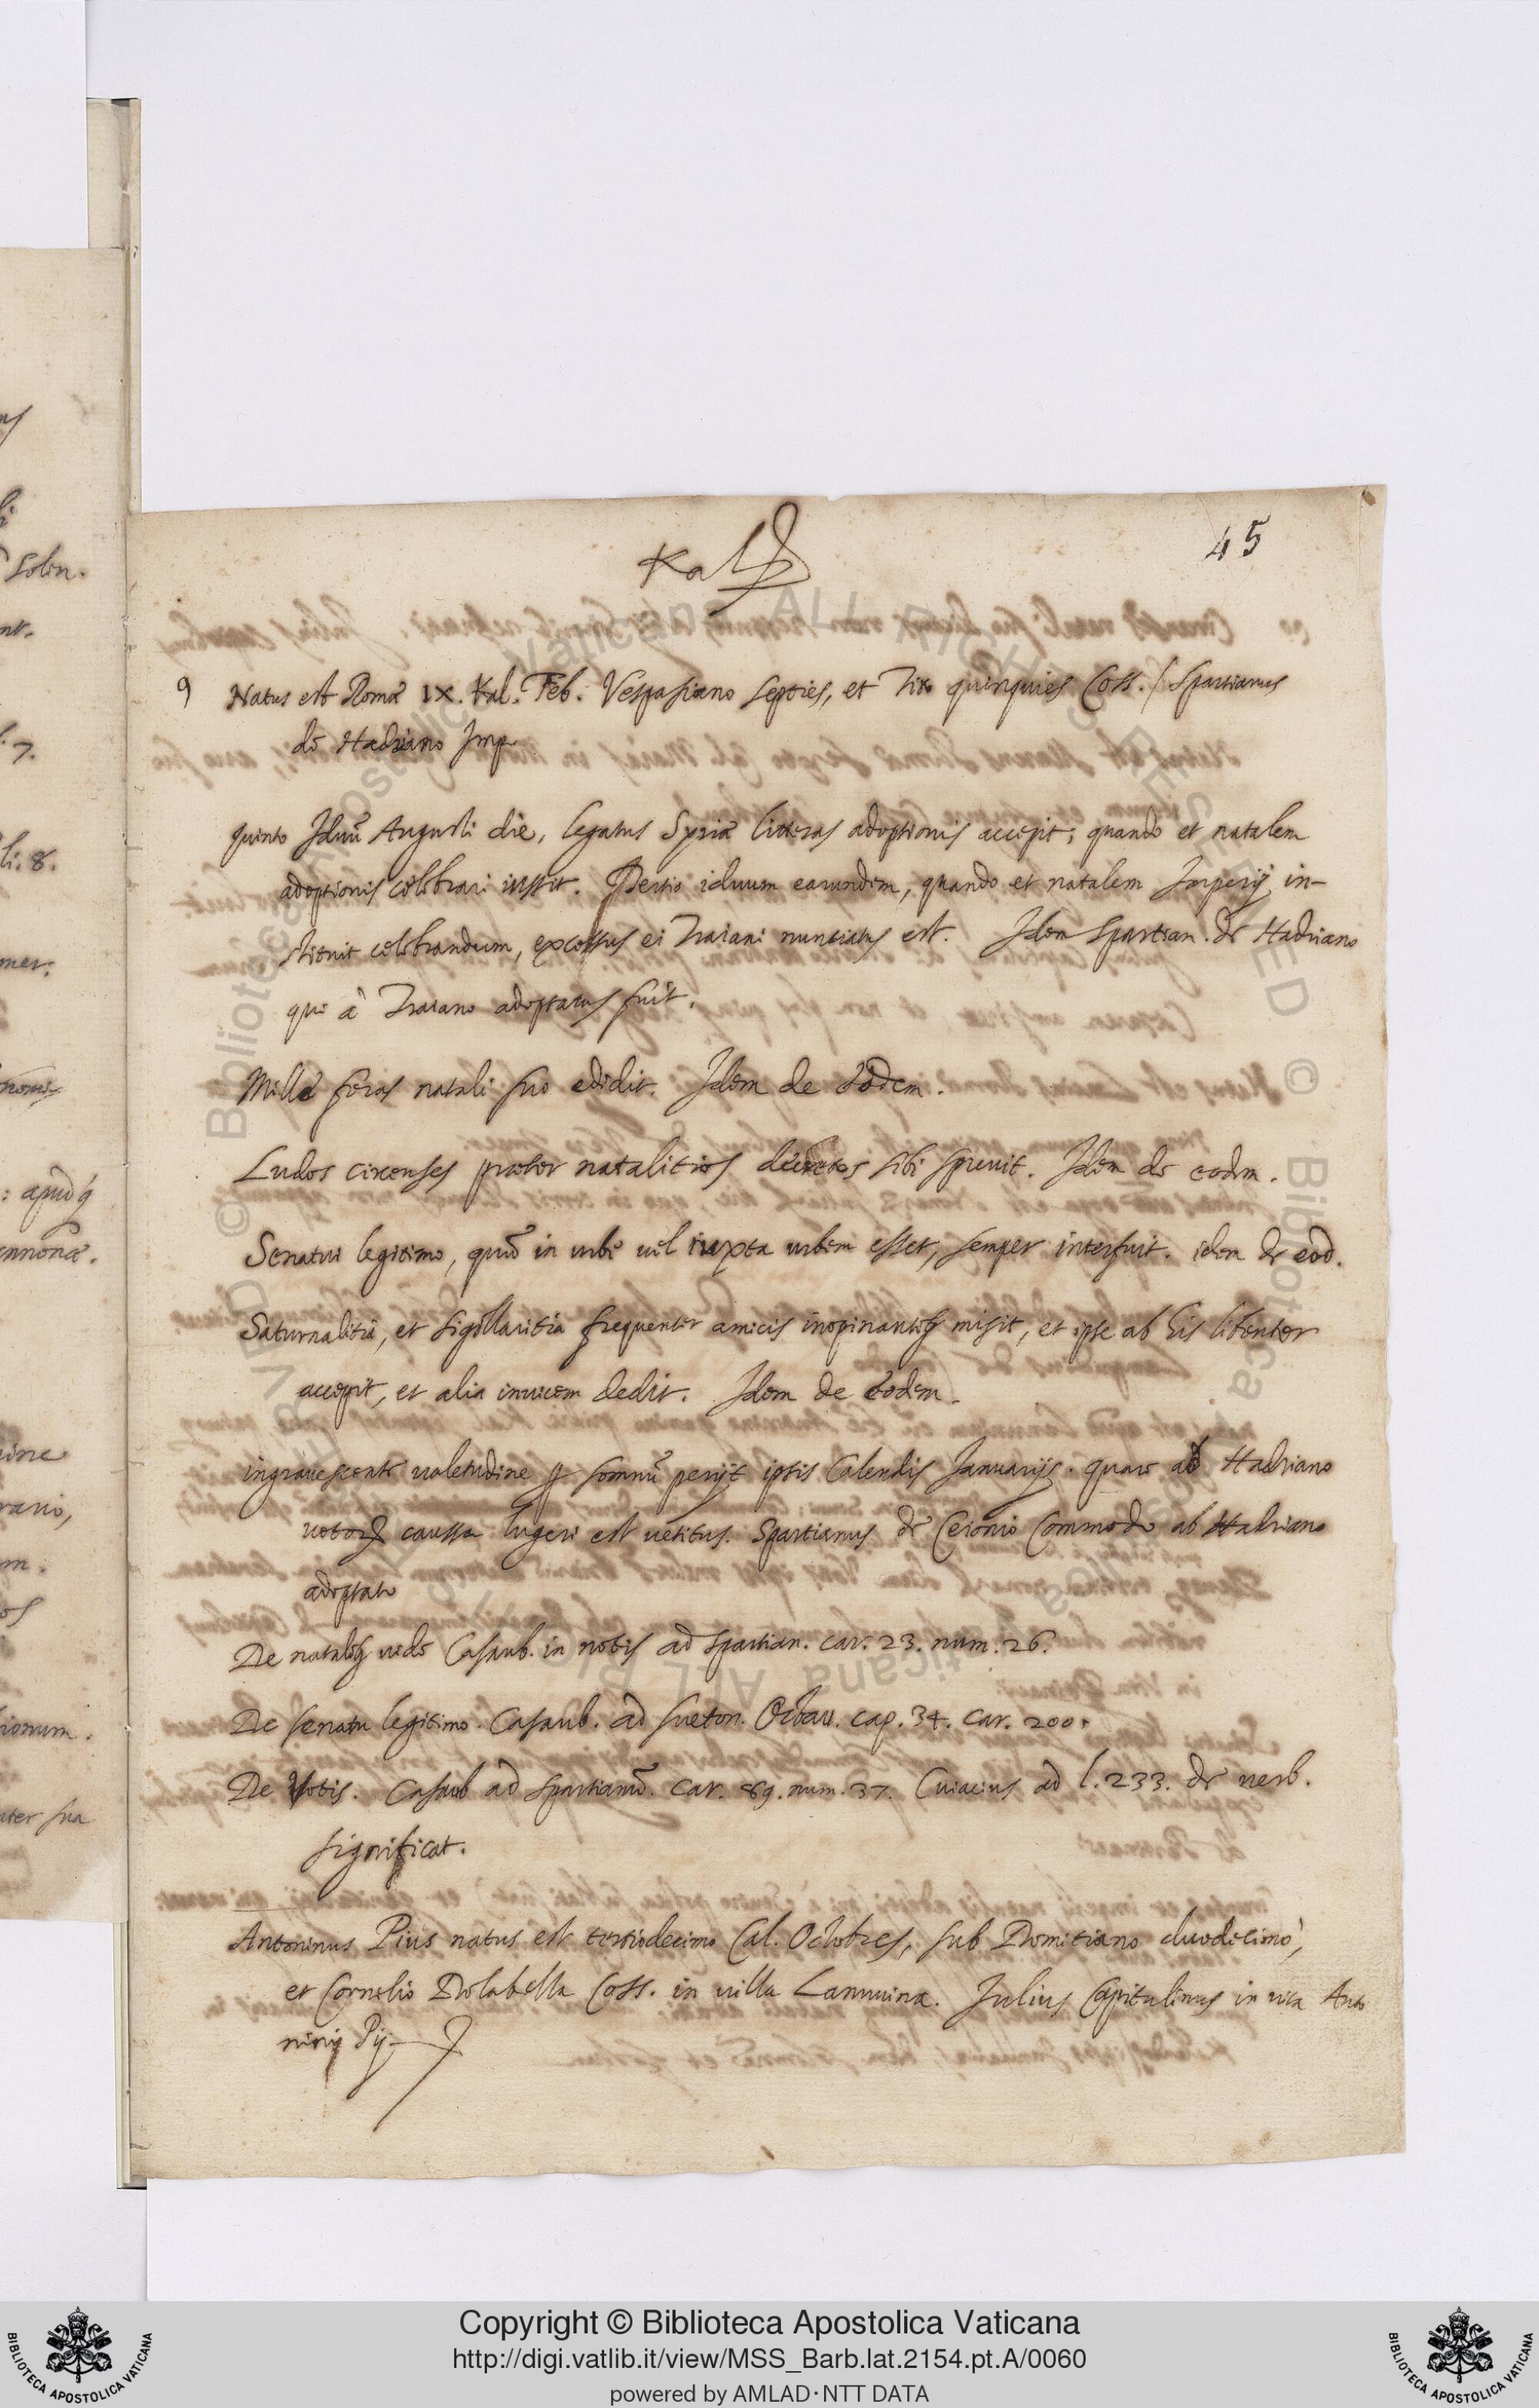 45
Kal
9 Natus est Romæ IX. Kal. Feb. Vespasiano septies, et Tito quinquies Coss. / Spartianus
de Hadriano Imp.
Quinto Iduũ Augusti die, legatus Syriæ litteras adoptionis accepit; quando et natalem
adoptionis celebrari iussit. Tertio iduum earundem, quando et natalem Imperij in-
stituit celebrandum, excessus ei Traiani nuntiatus est. Idem Spartian. de Hadriano
qui à Traiano adoptatus fuit.
Mille feras natali suo edidit. Idem de eodem.
Ludos circenses præter natalitios decretos sibi spreuit. Idem de eodem.
Senatui legitimo, quũ in urbe uel iuxta urbem esset, semper interfuit. idem de eod.
Saturnalitia, et sigillaritia frequenter amicis inopinantibꝫ misit, et ipse ab his libenter
accepit, et alia inuicem dedit. Idem de eodem.
ingrauescente ualetudine ꝑ somnũ perijt ipsis Calendis Ianuarijs. quare ab Hadriano
uotoꝝ caussa lugeri est uetitus. Spartianus de Ceionio Commodo ab Hadriano
adoptato
De natalibꝫ uide Casaub. in notis ad Spartian. car. 23. num. 26.
De senatu legitimo. Casaub. ad Sueton. Octau. cap. 34. car. 200.
De Votis. Casaub ad Spartianũ. car. 89. num. 37. Cuiacius ad l. 233. de uerb.
significat.
Antoninus Pius natus est tertiodecimo Cal. Octobres, sub Domitiano duodecimò,
et Cornelio Dolabella Coss. in uilla Lanuuina. Julius Capitulinus in uita Anto
nini Pij
solin.
7.
li. 8.
ter sua
© Biblioteca Apostolica Vaticana ALL RIGHTS RESERVED
Copyright © Biblioteca Apostolica Vaticana
http://digi.vatlib.it/view/MSS_Barb.lat.2154.pt.A/0060
powered by AMLAD·NTT DATA
BIBLIOTECA APOSTOLICA VATICANA
BIBLIOTECA APOSTOLICA VATICANA